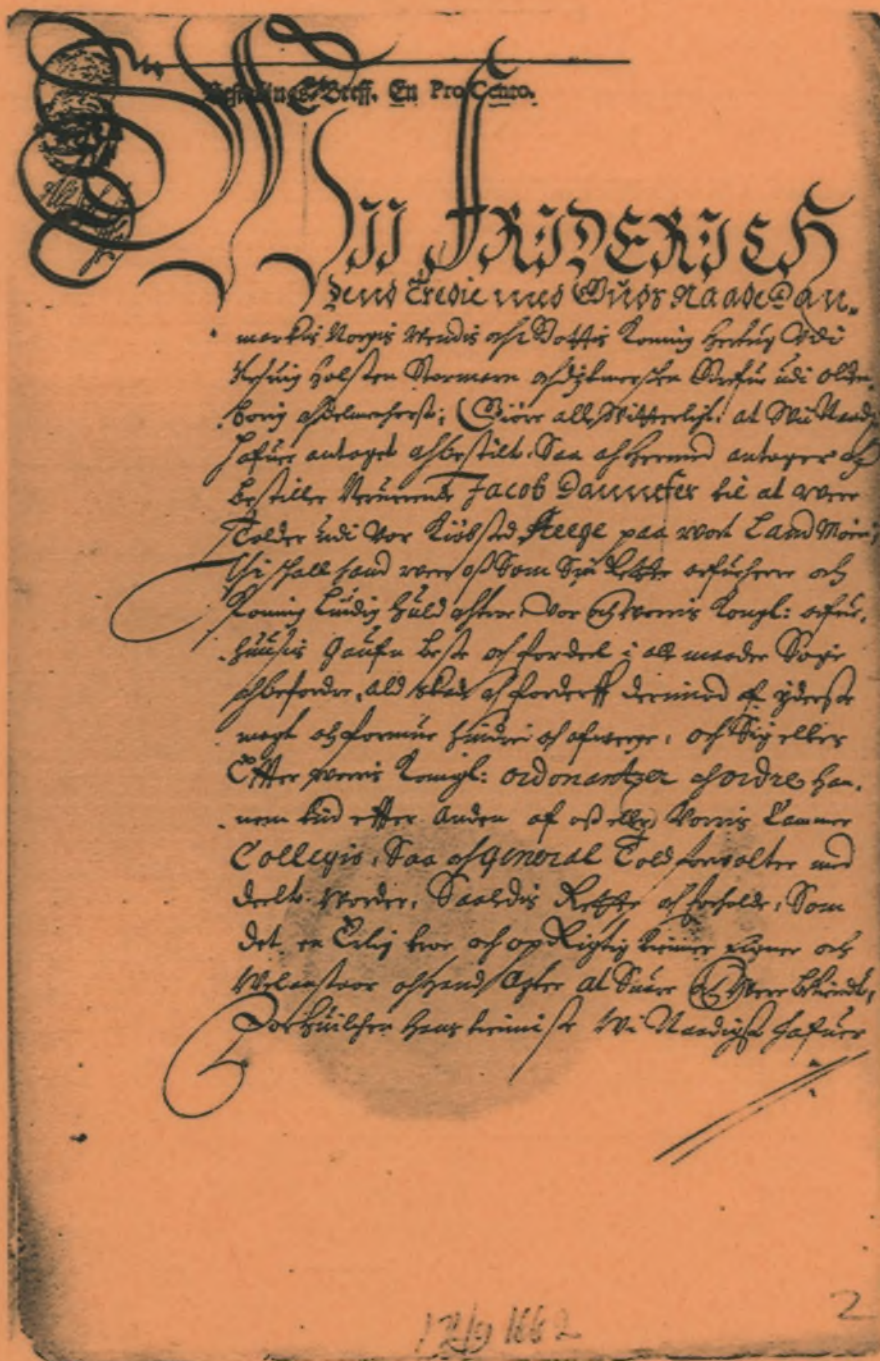 Bestillings Breff. En Pro Cento.
WII FRIDERICH
Dend Tredie med Guds Naade Dan-
marckis Norgis Wendis och Gottis Konning Hertug Udi
Slesuig Holsten Stormarn och Dytmersken Grefue udi Olden-
borig och Delmenhorst; Giöre alle Witterligt: at Wii Naadigst
hafuer antaget och bestilt, Saa och hermed antager och
bestiller Jacob Dannefer til at were
Tolder udi Vor Kiöbsted Steege paa vort Land Möen;
Thi schall hand were oss Som Sin Rette arfueherre och
Konning Lundig huld och troe, Vor och Worris Kongl: arfue-
huusis gaufn beste och fordeel i alle maader Söge
och befordre, ald skade och forderff derimod af yderste
magt och formue hindre och afwerge, och Sig ellers
Effter worris Kongl: ordonantzer och ordre han-
nem tid effter anden af oss eller Worris Cammer
Collegio, Saa och General Toldforvalter med
deelt worder, Saaledis Rette och forholde, Som
det en Erlig troe och opRigtig tienner eigner och
Wel anstaar och hand Acter at Suare och Were bekiendt,
For huilchen hans tienniste Wi Naadigst hafuer
17/9 1662
2